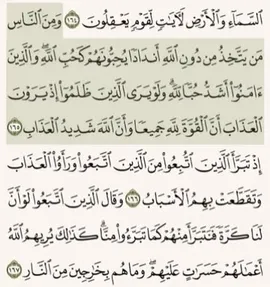 ٱلسَّمَآءِ وَٱلْأَرْضِ لَـَٔايَـٰتٍ لِّقَوْمٍ يَعْقِلُونَ ١٦٤ وَمِنَ ٱلنَّاسِ
مَن يَتَّخِذُ مِن دُونِ ٱللَّهِ أَندَادًا يُحِبُّونَهُمْ كَحُبِّ ٱللَّهِ ۖ وَٱلَّذِينَ
ءَامَنُوٓا۟ أَشَدُّ حُبًّا لِّلَّهِ ۗ وَلَوْ يَرَى ٱلَّذِينَ ظَلَمُوٓا۟ إِذْ يَرَوْنَ
ٱلْعَذَابَ أَنَّ ٱلْقُوَّةَ لِلَّهِ جَمِيعًا وَأَنَّ ٱللَّهَ شَدِيدُ ٱلْعَذَابِ ١٦٥
إِذْ تَبَرَّأَ ٱلَّذِينَ ٱتُّبِعُوا۟ مِنَ ٱلَّذِينَ ٱتَّبَعُوا۟ وَرَأَوُا۟ ٱلْعَذَابَ
وَتَقَطَّعَتْ بِهِمُ ٱلْأَسْبَابُ ١٦٦ وَقَالَ ٱلَّذِينَ ٱتَّبَعُوا۟ لَوْ أَنَّ
لَنَا كَرَّةً فَنَتَبَرَّأَ مِنْهُمْ كَمَا تَبَرَّءُوا۟ مِنَّا ۗ كَذَٰلِكَ يُرِيهِمُ ٱللَّهُ
أَعْمَـٰلَهُمْ حَسَرَٰتٍ عَلَيْهِمْ ۖ وَمَا هُم بِخَـٰرِجِينَ مِنَ ٱلنَّارِ ١٦٧